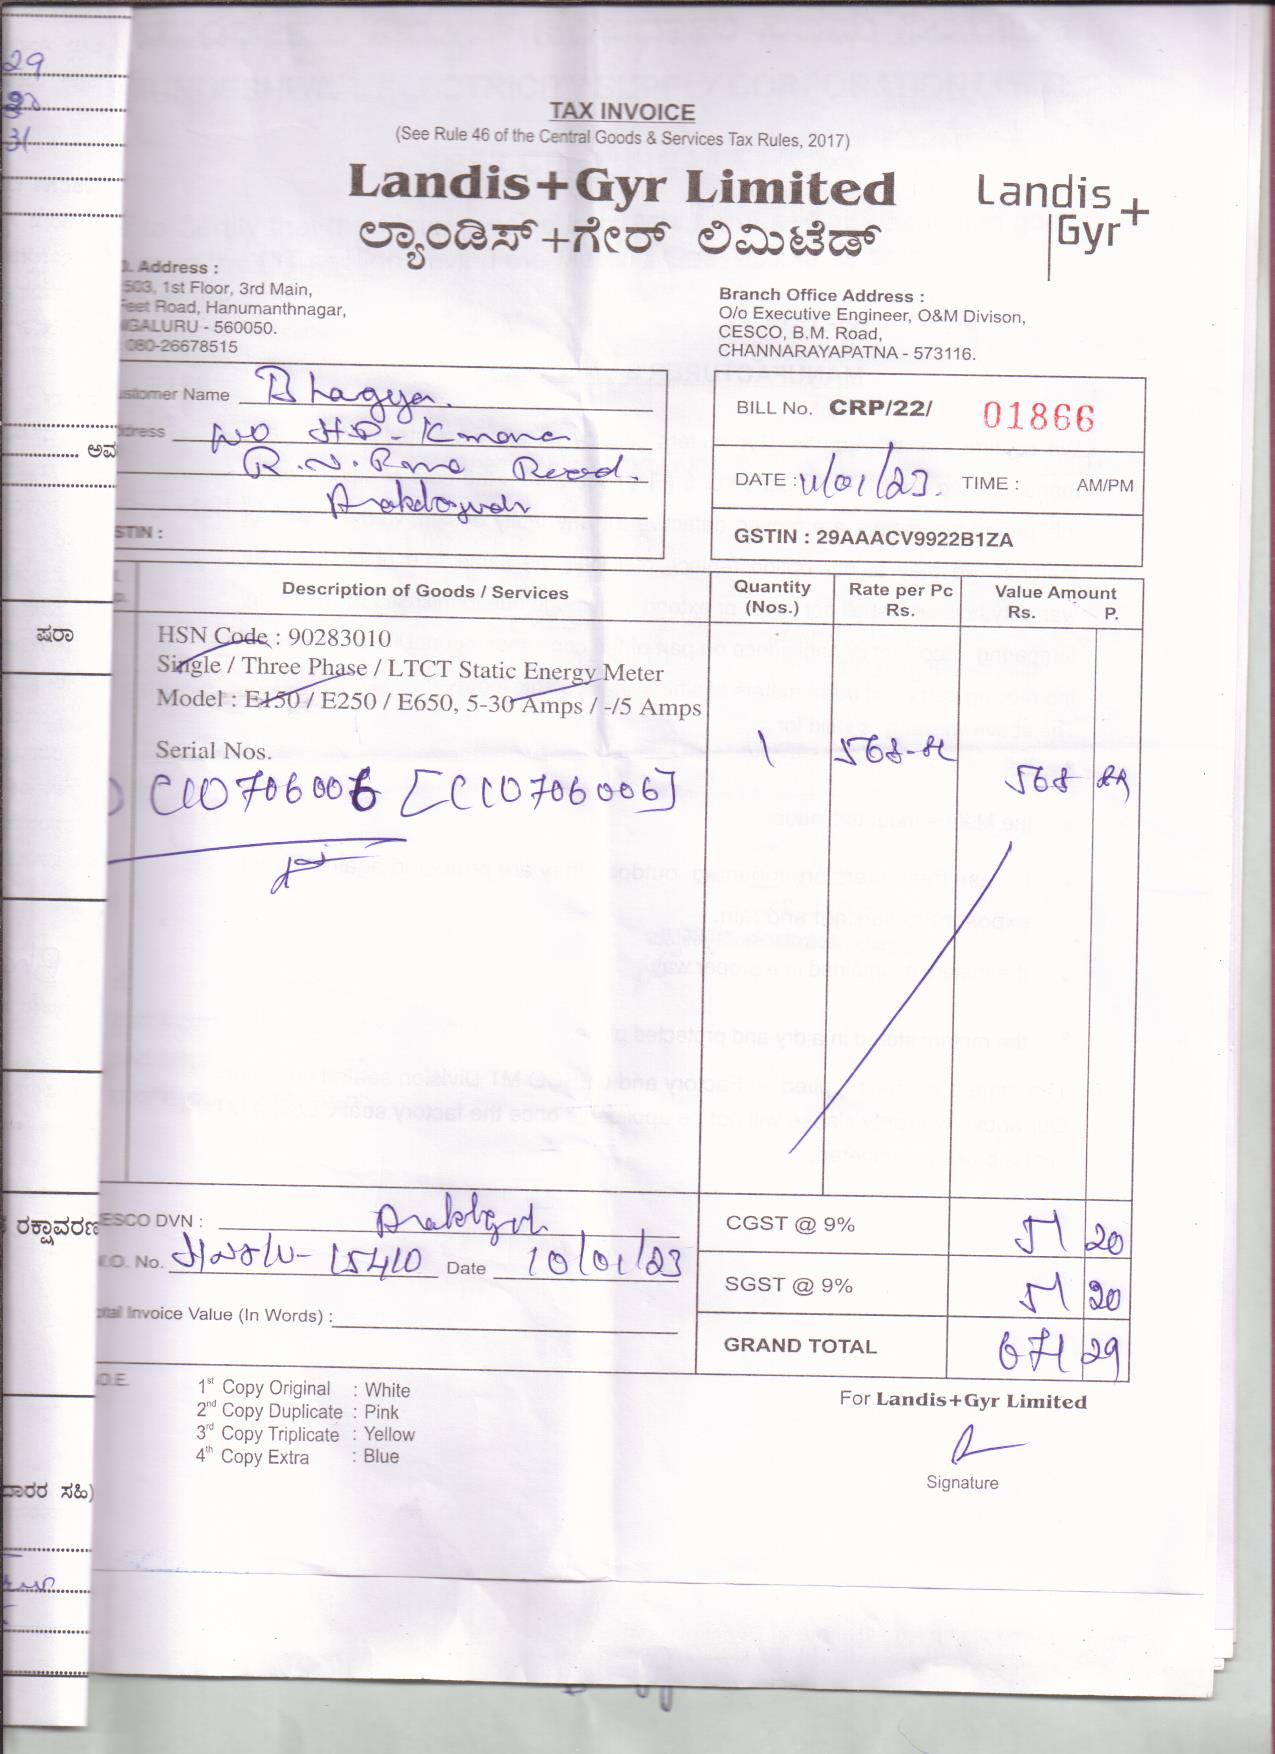 29
31
TAX INVOICE
(See Rule 46 of the Central Goods & Services Tax Rules, 2017)
Landis+Gyr Limited
ಲ್ಯಾಂಡಿಸ್+ಗೇರ್ ಲಿಮಿಟೆಡ್
Landis+
Gyr
. Address :
503, 1st Floor, 3rd Main,
Feet Road, Hanumanthnagar,
NGALURU - 560050.
: 080-26678515
Branch Office Address :
O/o Executive Engineer, O&M Divison,
CESCO, B.M. Road,
CHANNARAYAPATNA - 573116.
ustomer Name Bhagya.
ddress W/O
R.N. Road.
STIN :
BILL No. CRP/22/ 01866
DATE : 11/01/23. TIME : AM/PM
GSTIN : 29AAACV9922B1ZA
Description of Goods / Services
Quantity (Nos.)
Rate per Pc Rs.
Value Amount Rs. P.
HSN Code : 90283010
Single / Three Phase / LTCT Static Energy Meter
Model : E150 / E250 / E650, 5-30 Amps / -/5 Amps
Serial Nos.
C110706006 [C110706006]
1
568
ಅವ
ಷರಾ
ರಕ್ಷಾವರಣ
ದಾರರ ಸಹಿ)
ESCO DVN :
.O. No. 15410 Date 10/01/23
otal Invoice Value (In Words) :
CGST @ 9% 51 20
SGST @ 9% 51 20
GRAND TOTAL 671 29
.O.E.
1st Copy Original : White
2nd Copy Duplicate : Pink
3rd Copy Triplicate : Yellow
4th Copy Extra : Blue
For Landis+Gyr Limited
Signature